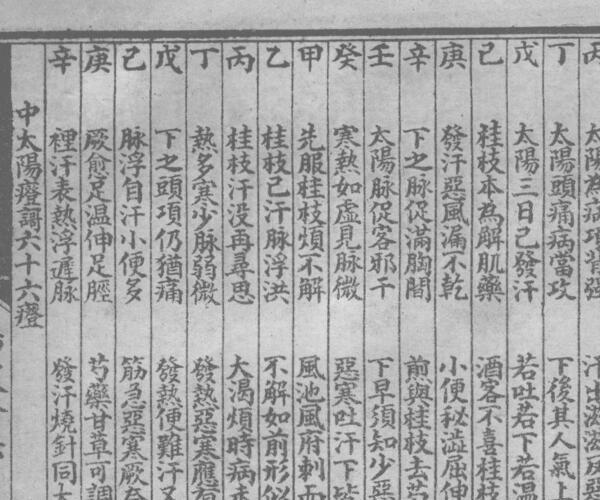 丙 太陽為病項背強 汗出濈濈反惡
丁 太陽頭痛病當攻 下後其人氣上
戊 太陽三日已發汗 若吐若下若温
己 桂枝本為解肌藥 酒客不喜桂枝
庚 發汗惡風漏不乾 小便秘澁屈伸
辛 下之脉促滿胸間 煎與桂枝去芍
壬 太陽脉促客邪干 下早須知少惡
癸 寒熱如虛見脉微 惡寒吐汗下皆
甲 先服桂枝煩不解 風池風府刺而
乙 桂枝已汗脉浮洪 不解如前形似
丙 桂枝汗没再尋思 大渴煩時病本
丁 熱多寒少脉弱微 發熱惡寒應
戊 下之頭項仍猶痛 發熱便難汗又
己 脉浮自汗小便多 筋急惡寒厥
庚 厥愈足温伸足脛 芍藥甘草可調
辛 裡汗表熱浮遲脉 發汗燒針同
中太陽證謌六十六證